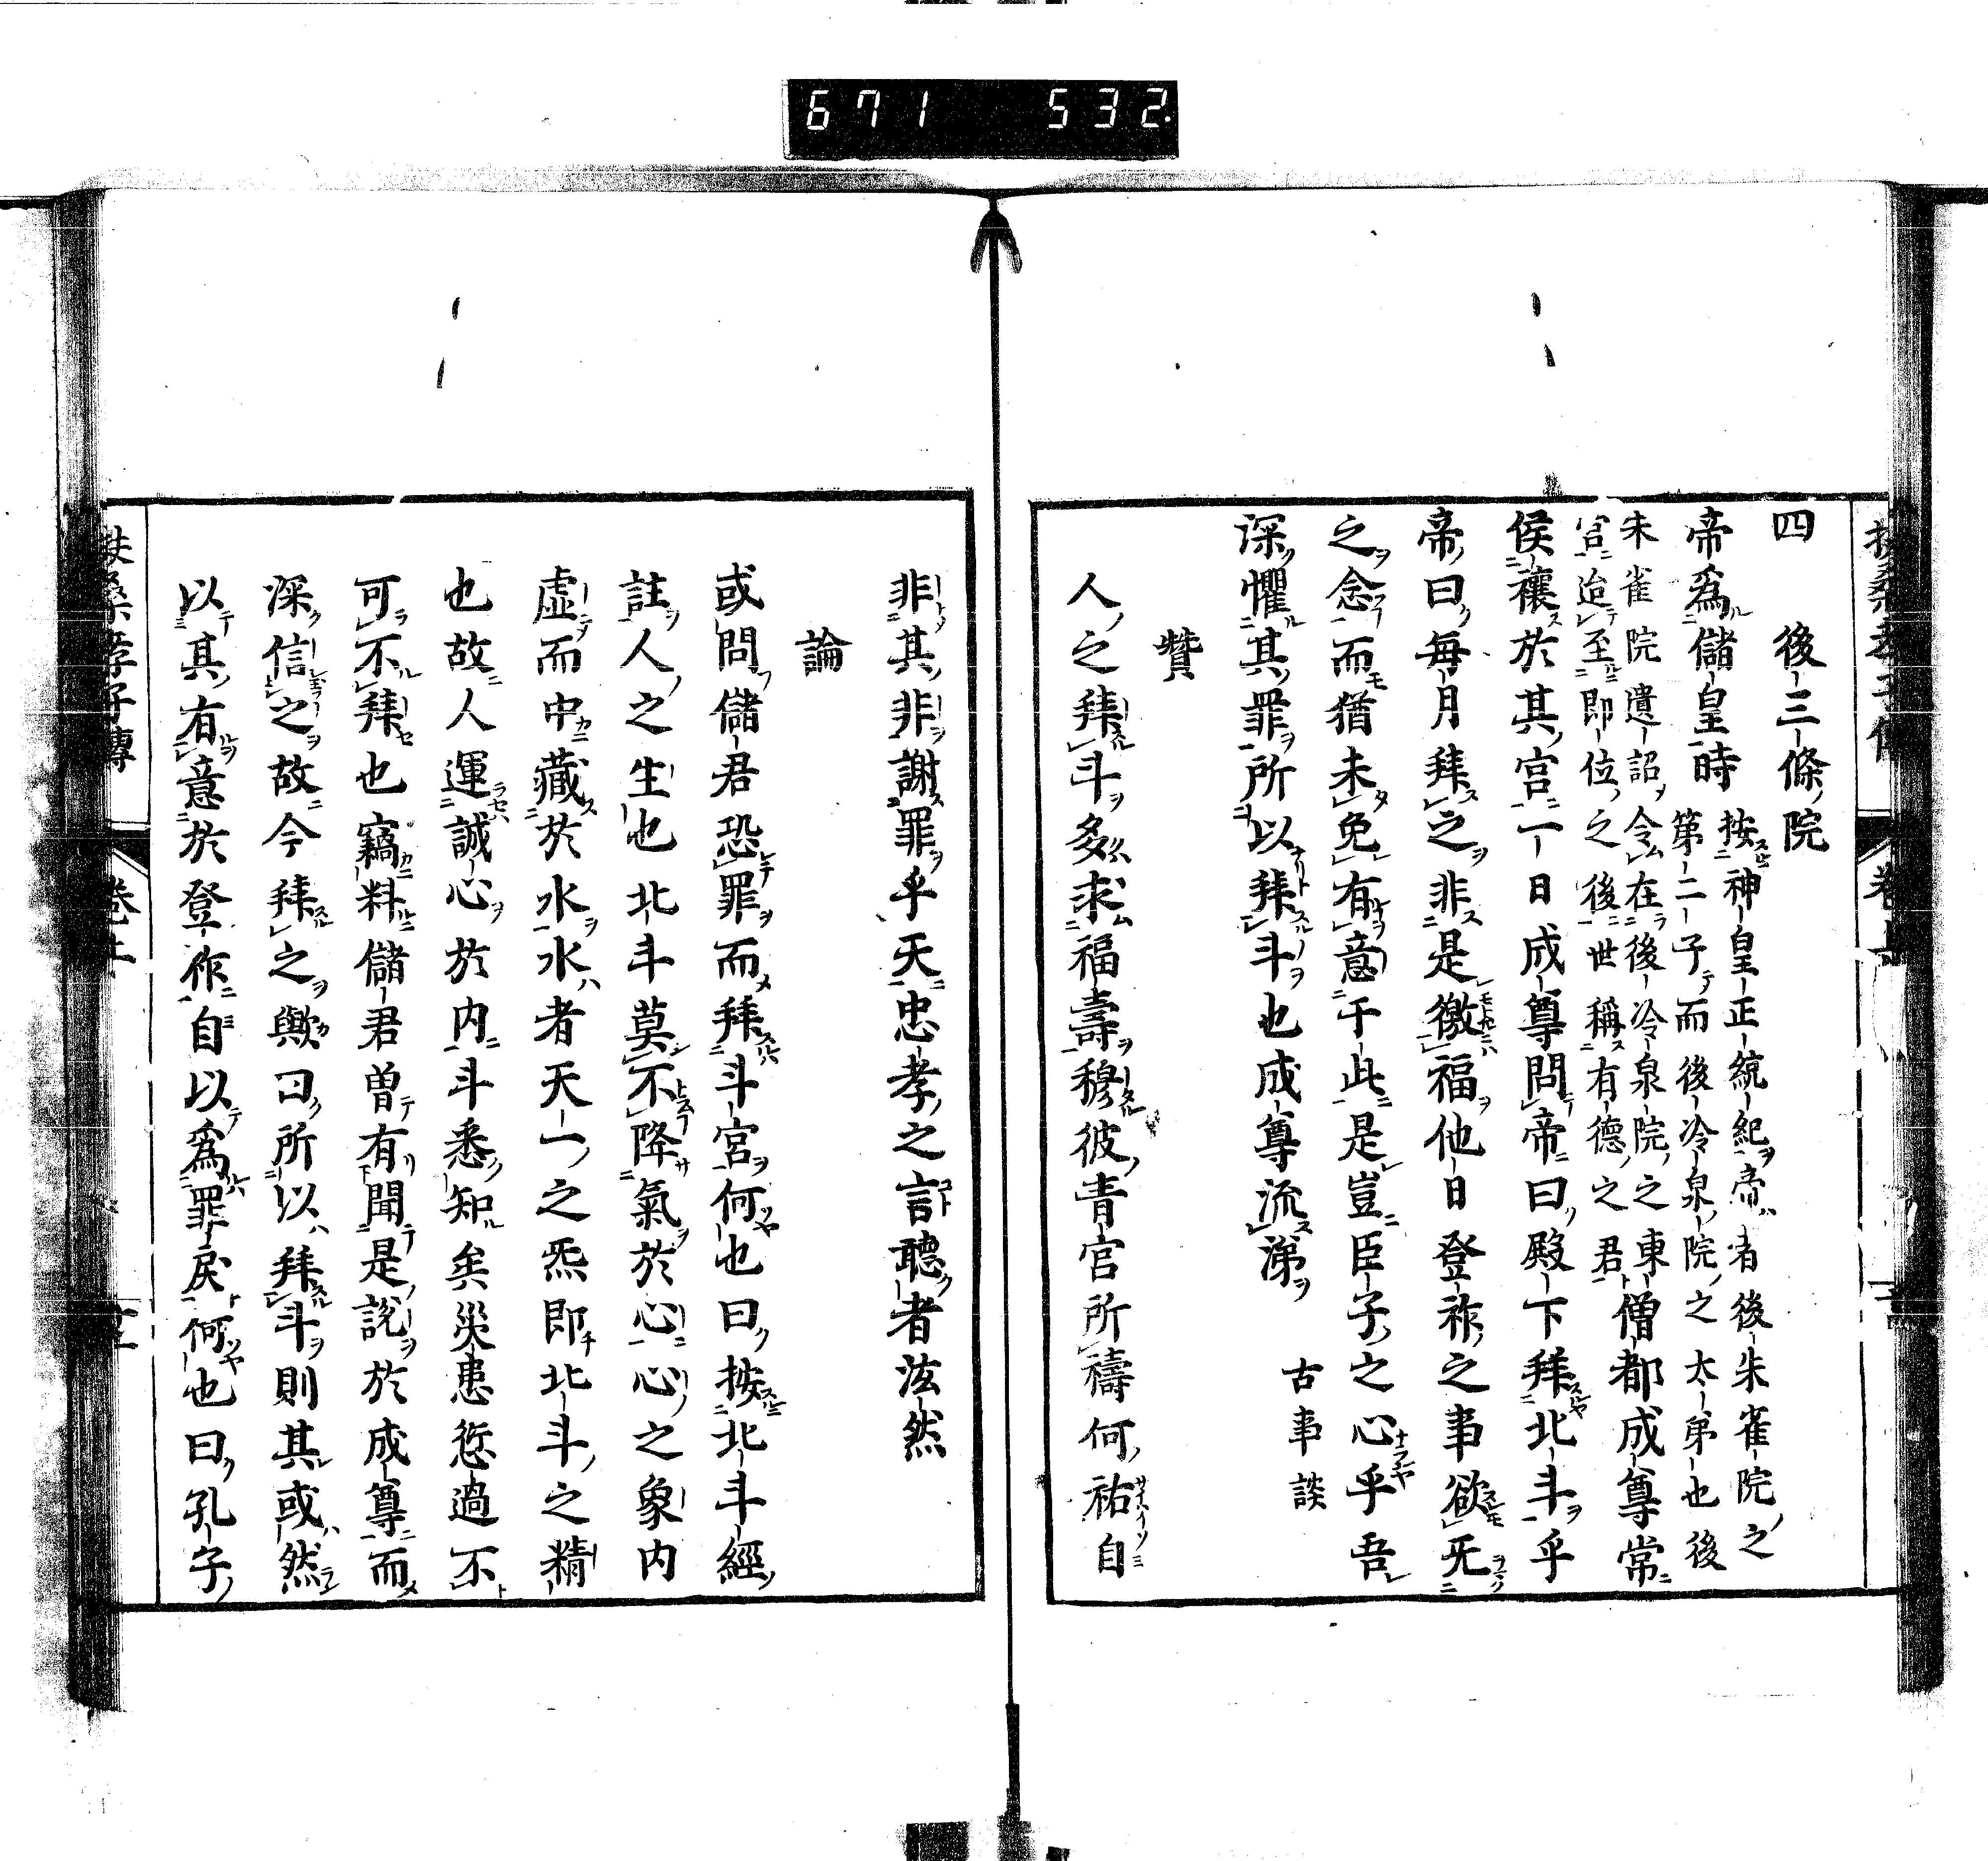 671 532
四 後三條院
帝爲儲皇時 按神皇正統紀帝者後朱雀院之
第二子而後冷泉院之太弟也後
朱雀院遺詔令在後冷泉院之東
宮迨至即位之後世稱有德之君
僧都成尊常
侯禳於其宮一日成尊問帝曰殿下拜北斗乎
帝曰每月拜之非是徼福他日登祚之事欲旡
之念而猶未免有意于此是豈臣子之心乎吾
深懼其罪所以拜斗也成尊流涕 古事談
贊
人之拜斗多求福壽穆彼青宮所禱何祐自
非其非謝罪乎天忠孝之言聽者泫然
論
或問儲君恐罪而拜斗宮何也曰按北斗經
註人之生也北斗莫不降氣於心心之象内
虛而中藏於水水者天一之炁即北斗之精
也故人運誠心於内斗悉知矣災患愆過不
可不拜也竊料儲君曽有聞是說於成尊而
深信之故今拜之歟曰所以拜斗則其或然
以其有意於登祚自以爲罪戾何也曰孔子
扶桑孝子傳